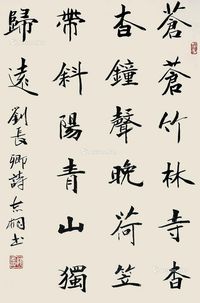 蒼蒼竹林寺杳
杳鐘聲晚荷笠
帶斜陽青山獨
歸遠劉長卿詩